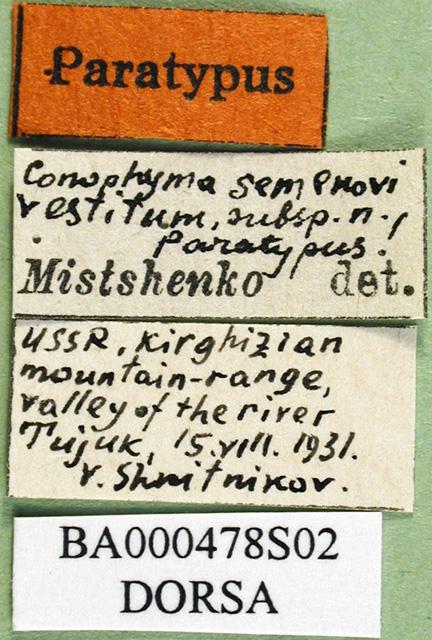 Paratypus
Conophyma semenovi
vestitum, subsp. n.,
Paratypus.
Mistshenko det.
USSR, kirghizian
mountain-range,
valley of the river
Tujuk, 15.VIII. 1931.
V. Shnitnikov.
BA000478S02
DORSA